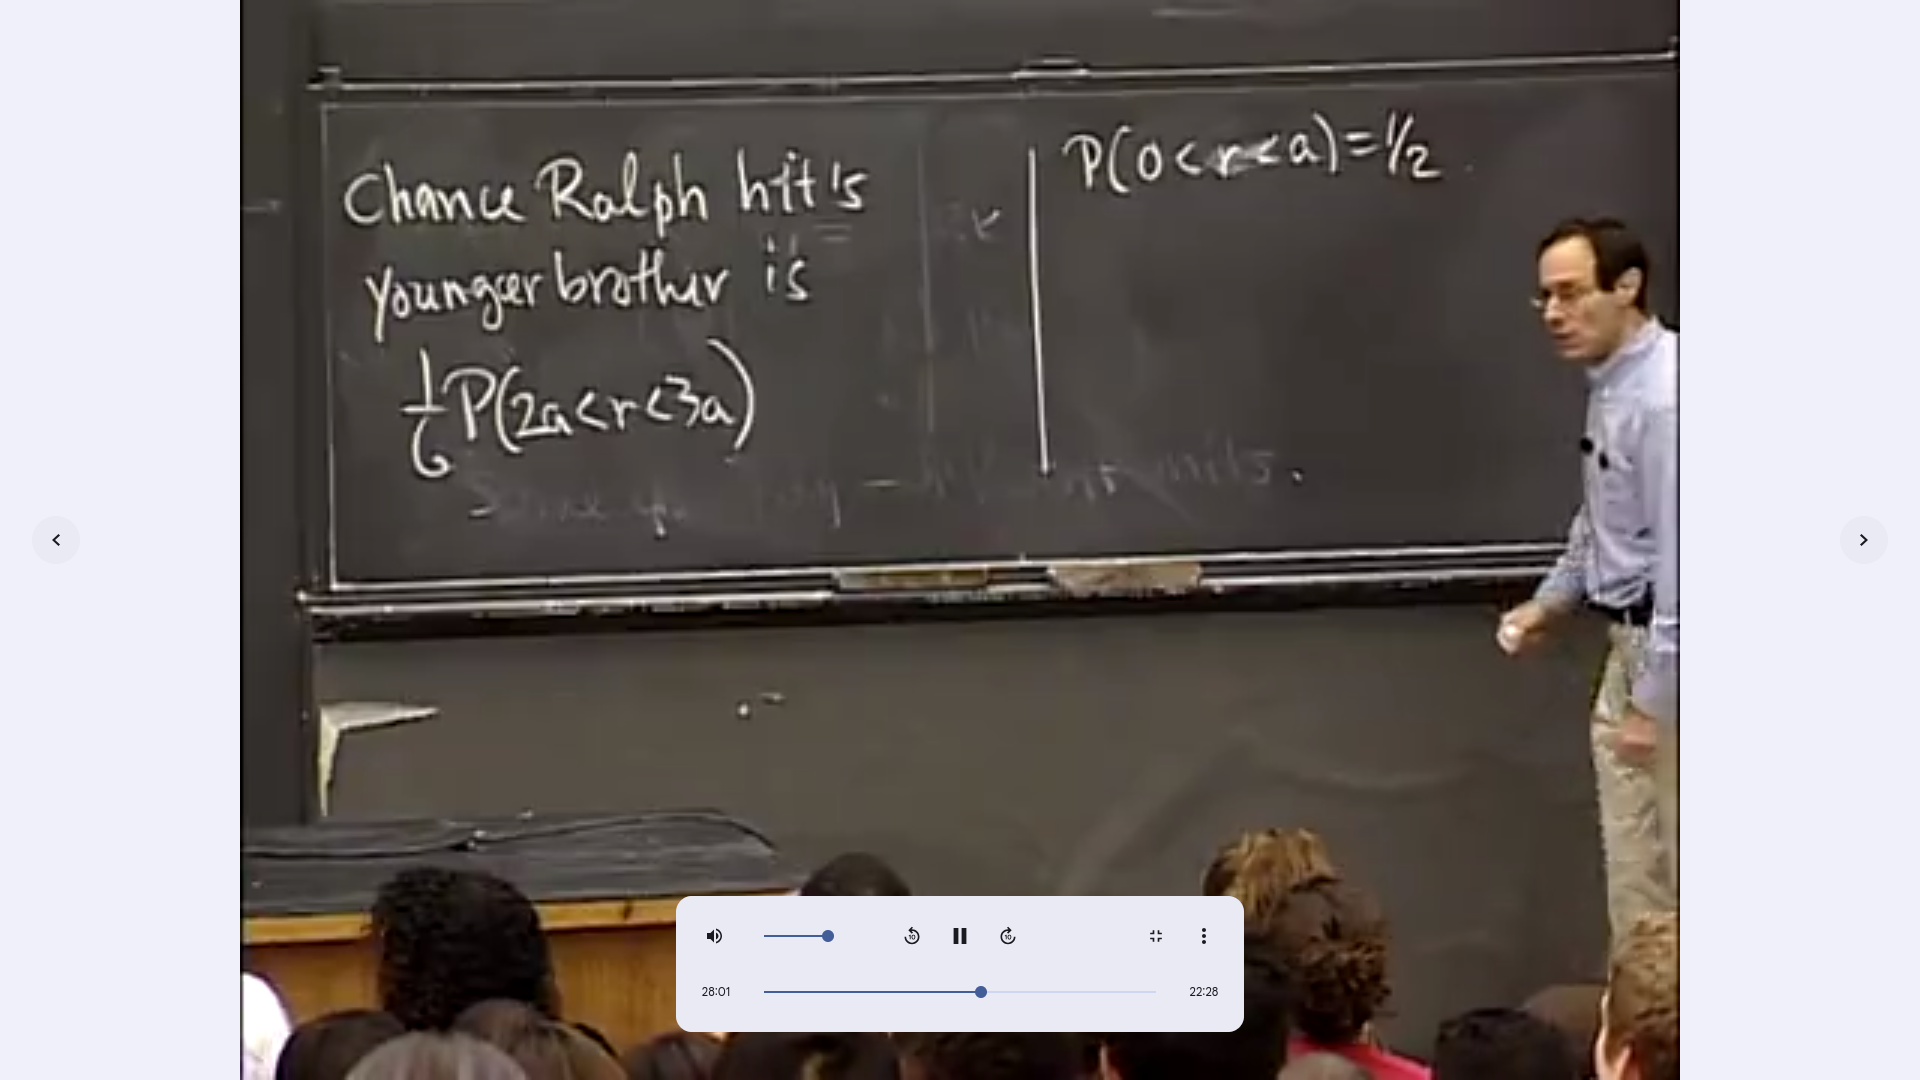 Chance Ralph hit's
younger brother is
1/6 P(2a<r<3a)
P(0<r<a)=1/2
28:01
22:28